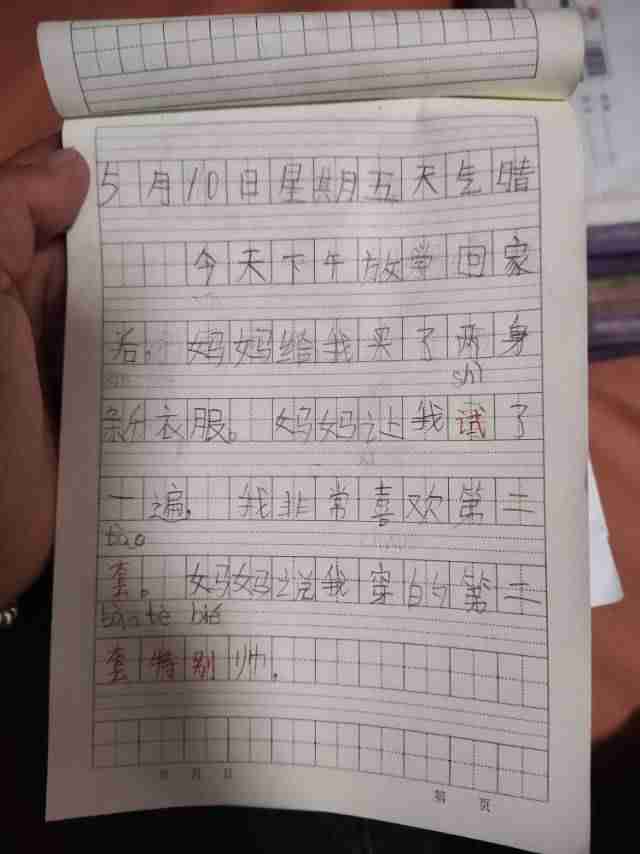 5月10日星期五天气晴
今天下午放学回家
后,妈妈给我买了两身
shì
新衣服。妈妈让我试了
一遍,我非常喜欢第二
tào
套。妈妈说我穿的第二
tào tè bié
套特别帅。
年 月 日
第 页